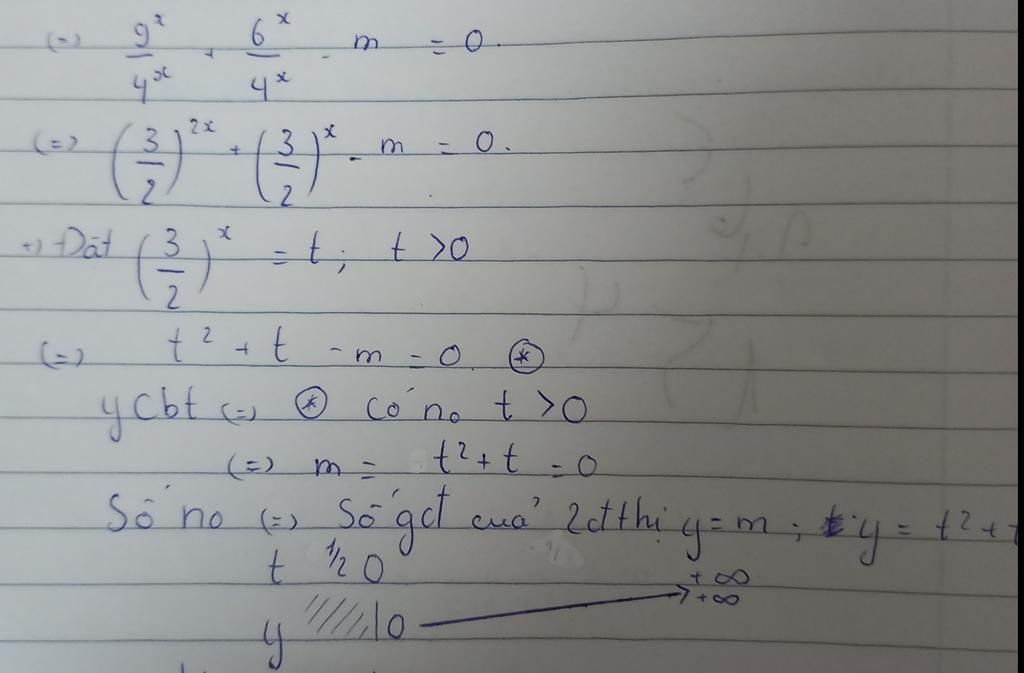 (=) 9^x/4^x + 6^x/4^x - m = 0.
(=) (3/2)^2x + (3/2)^x - m = 0.
=) Đặt (3/2)^x = t; t > 0
(=) t² + t - m = 0. (*)
ycbt (=) (*) có no t > 0
(=) m = t² + t = 0
Số no (=) Số gđ của 2 đthị y = m; y = t² +
t 1/2 0 +∞
y 0 +∞